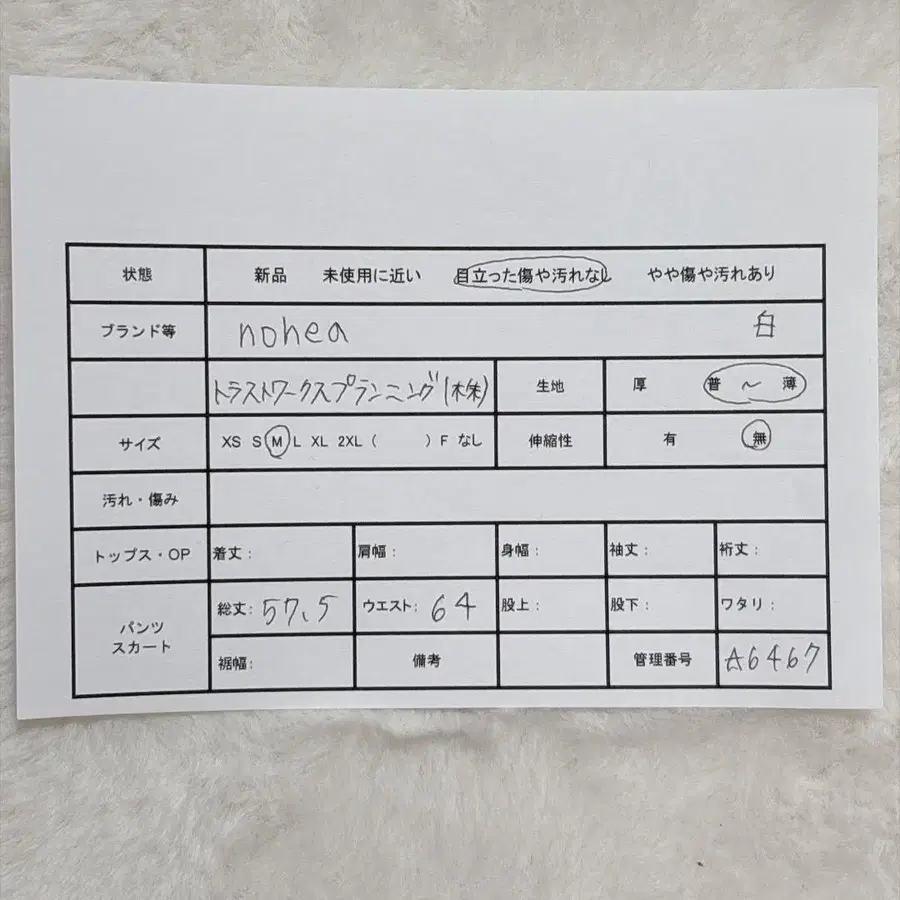 状態 新品 未使用に近い 目立った傷や汚れなし やや傷や汚れあり
ブランド等 nohea 白
トラストワークスプランニング(株) 生地 厚 普 〜 薄
サイズ XS S M L XL 2XL ( ) F なし 伸縮性 有 無
汚れ・傷み
トップス・OP 着丈: 肩幅: 身幅: 袖丈: 裄丈:
パンツ
スカート
総丈: 57.5 ウエスト: 64 股上: 股下: ワタリ:
裾幅: 備考 管理番号 ☆6467